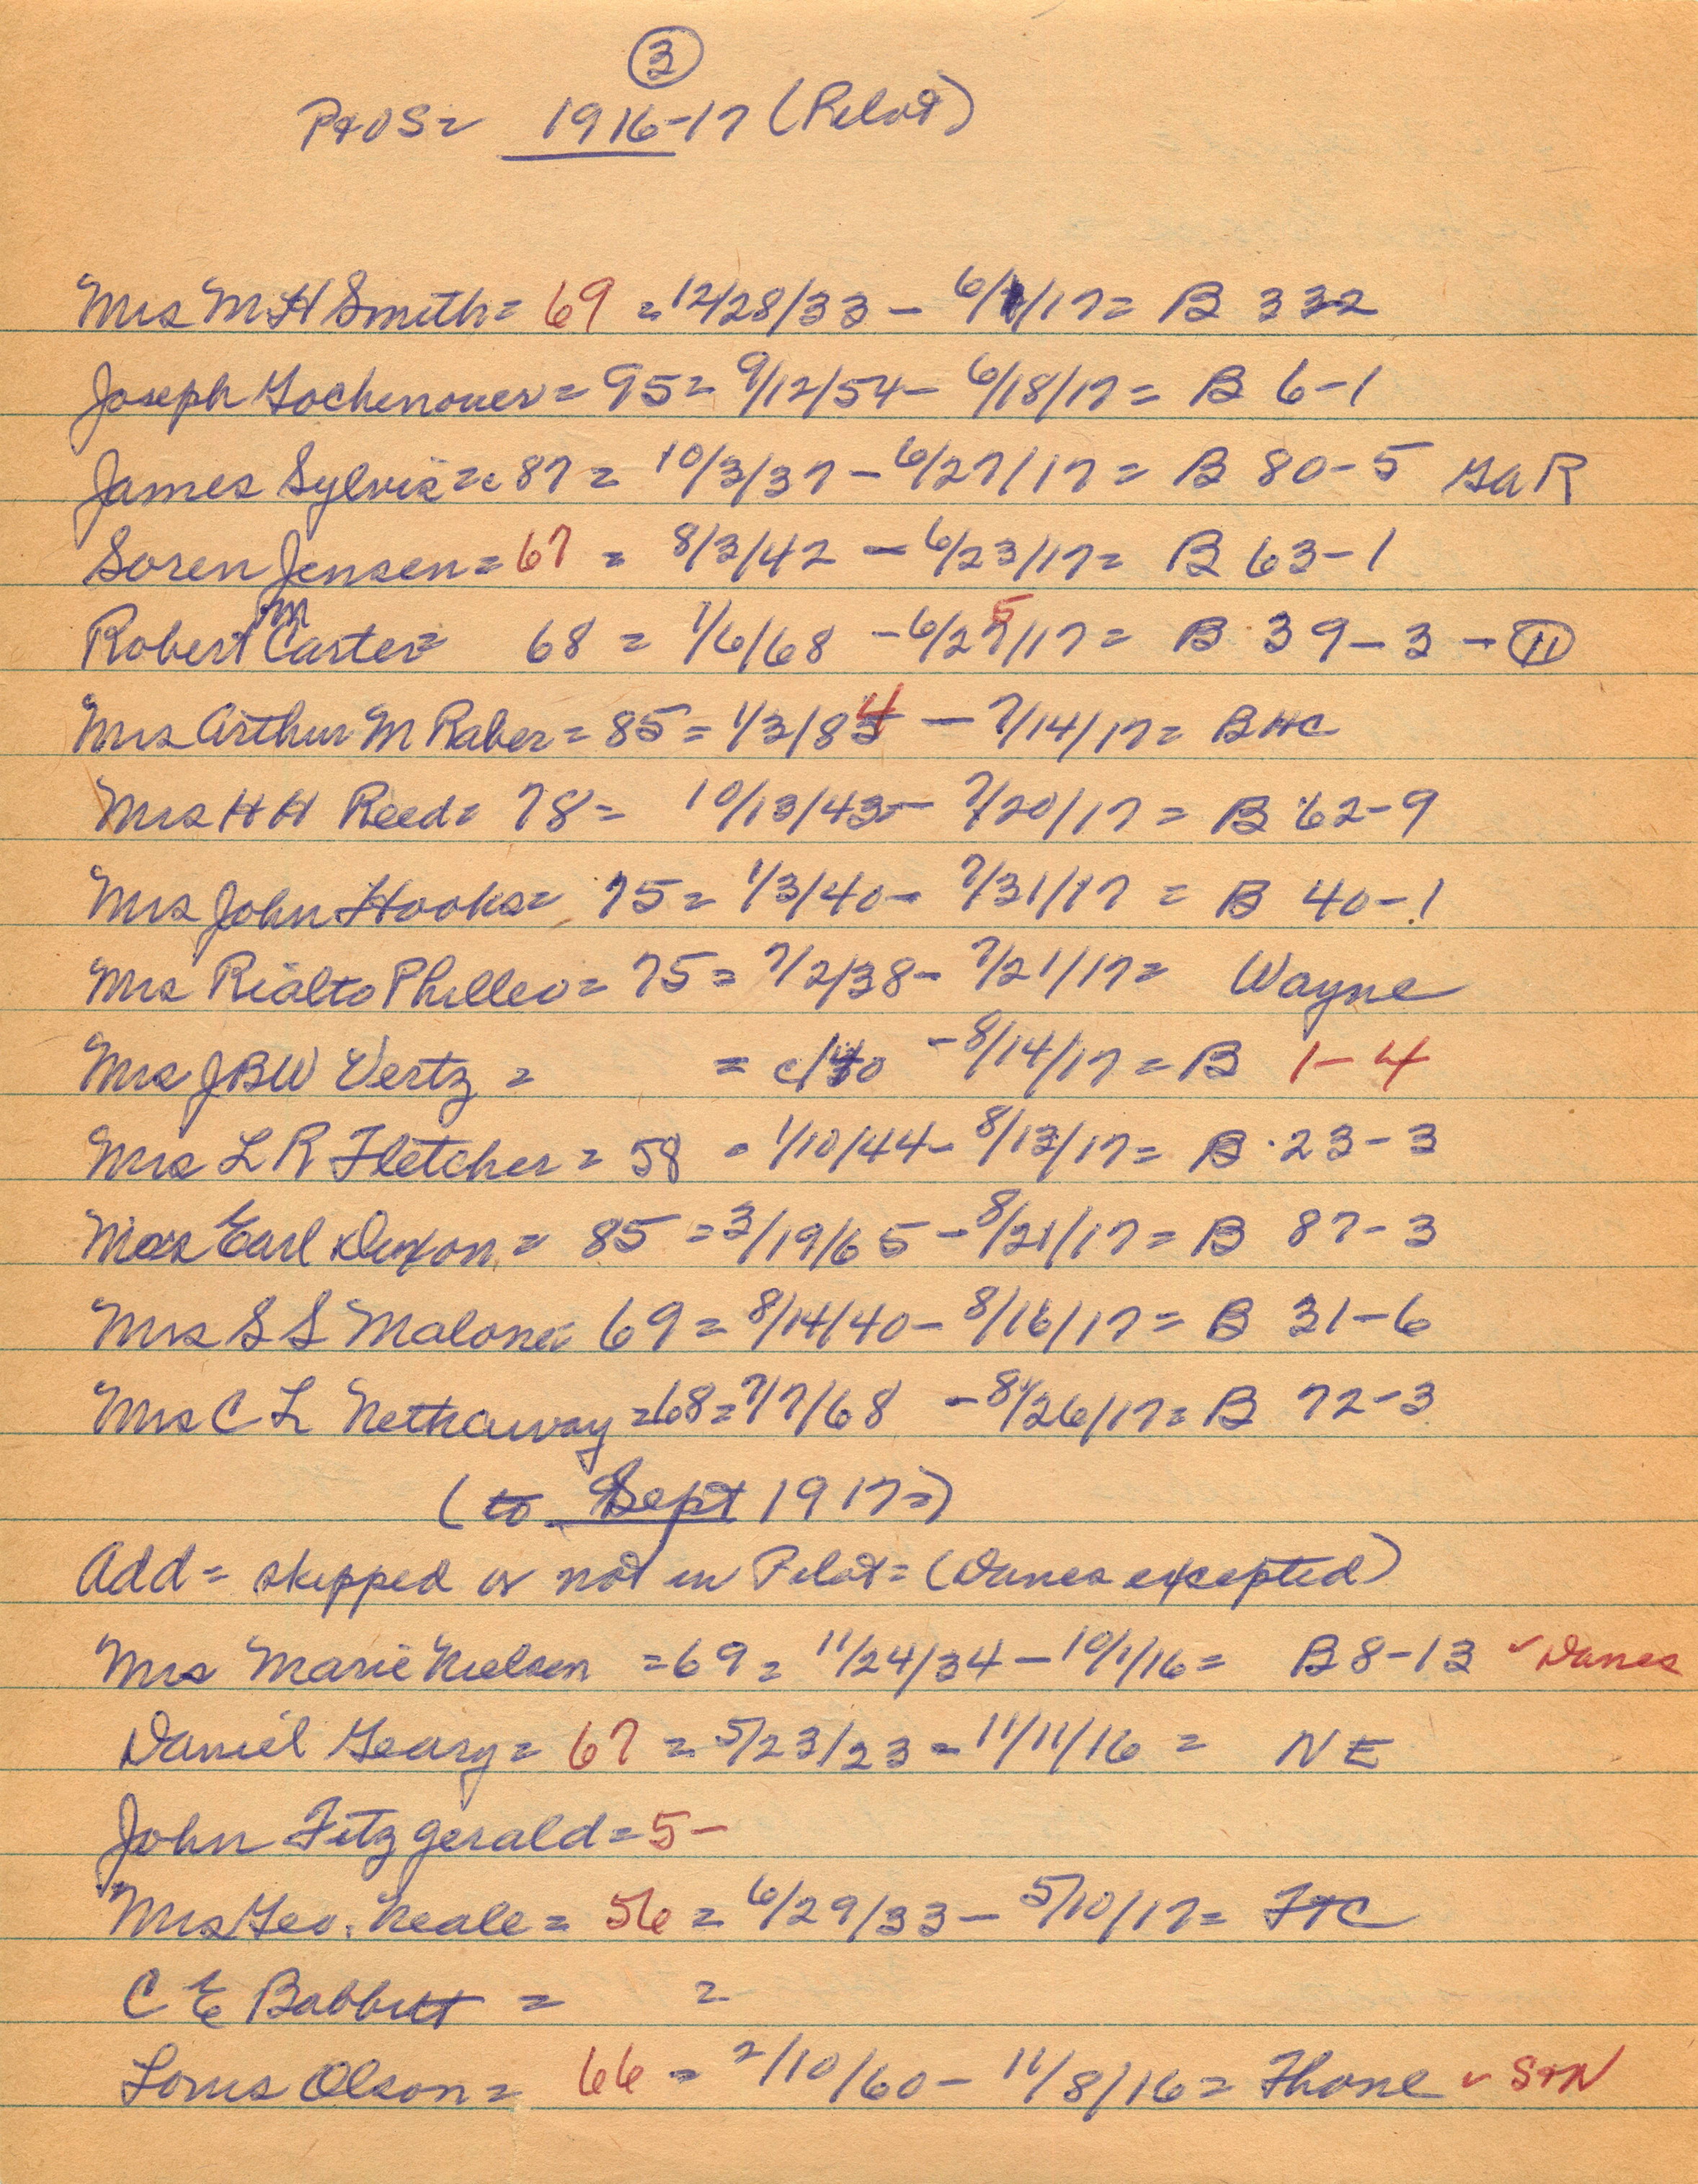 3
P+OS= 1916-17 (Pilot)
Mrs M H Smith= 69 =12/28/33 - 6/1/17= B 332
Joseph Gochenouer= 95= 9/12/54- 6/18/17= B 6-1
James Sylvis= 87= 10/3/37-6/27/17= B 80-5 GaR
Soren Jensen= 67 = 8/3/42 -6/23/17= B 63-1
M
5
Robert Carter= 68 = 1/6/68 -6/27/17= B 39-3 - 11
Mrs Arthur M Raber= 85= 1/3/84 - 7/14/17= BHC
Mrs H H Reed= 78= 10/13/43- 7/20/17= B 62-9
Mrs John Hooks= 75= 1/3/40- 7/31/17 = B 40-1
Mrs Rialto Philleo= 75= 7/2/38- 7/21/17= Wayne
Mrs JBW Vertz = = c/40 -8/14/17= B 1-4
Mrs L R Fletcher= 58 = 1/10/44- 8/13/17= B 23-3
Mrs Earl Dixon= 85 =3/19/65-8/21/17= B 87-3
Mrs S S Malone= 69= 8/14/40- 8/16/17= B 31-6
Mrs C L Nethaway =68=7/7/68 -8/26/17= B 72-3
(to Sept 1917=)
Add= skipped or not in Pilot= (Danes excepted)
Mrs Marie Nielsen =69= 11/24/34-10/1/16= B 8-13 ✓Danes
Daniel Geary= 67 = 5/23/23-11/11/16 = NE
John Fitzgerald=5-
Mrs Geo. Neale= 56= 6/29/33- 5/10/17= FTC
C E Babbitt = =
Louis Olson= 66 = 2/10/60- 11/8/16= Fhone ✓ S+N